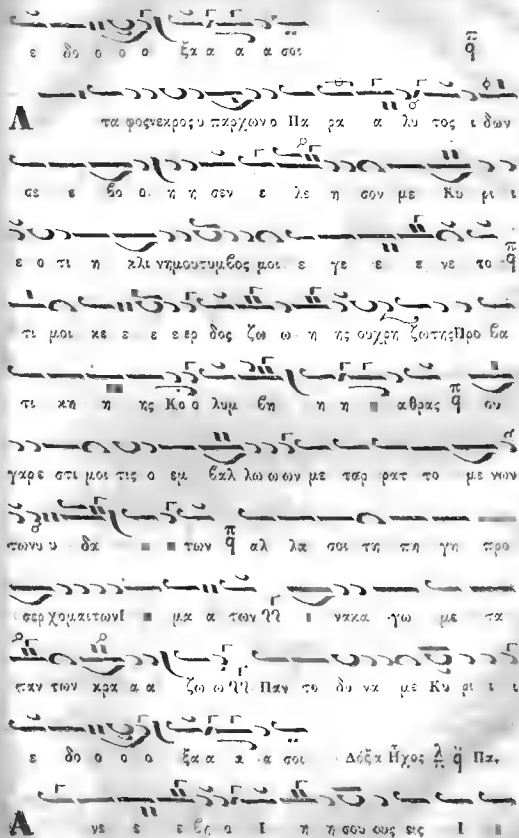 ε δο ο ο ο ξα α α α σοι
Α τα φος νεκρος υ παρχων ο Πα ρα α λυ τος ι δων
σε ε βο ο η η σεν ε λε η σον με Κυ ρι ι
ε ο τι η κλι νη μου τυμβος μοι ε γε ε ε νε το
τι μοι κε ε ε ερ δος ζω ω η ης ου χρη ζω της Προ βα
τι κη η ης Κο ο λυμ βη η η αθρας ου
γαρ ε στι μοι τις ο εμ βαλ λω ω ων με ταρ ρατ το με νων
των υ υ δα των αλ λα σοι τη πη γη προ
σερ χομαι των Ι μα α των ι να κα γω με τα
παν των κρα α α ζω ω Παν το δυ να με Κυ ρι ι ι
ε δο ο ο ο ξα α α α σοι Δόξα Ἦχος λ π q Πα.
Α νε ε ε βη ο Ι η η σου ους εις Ι